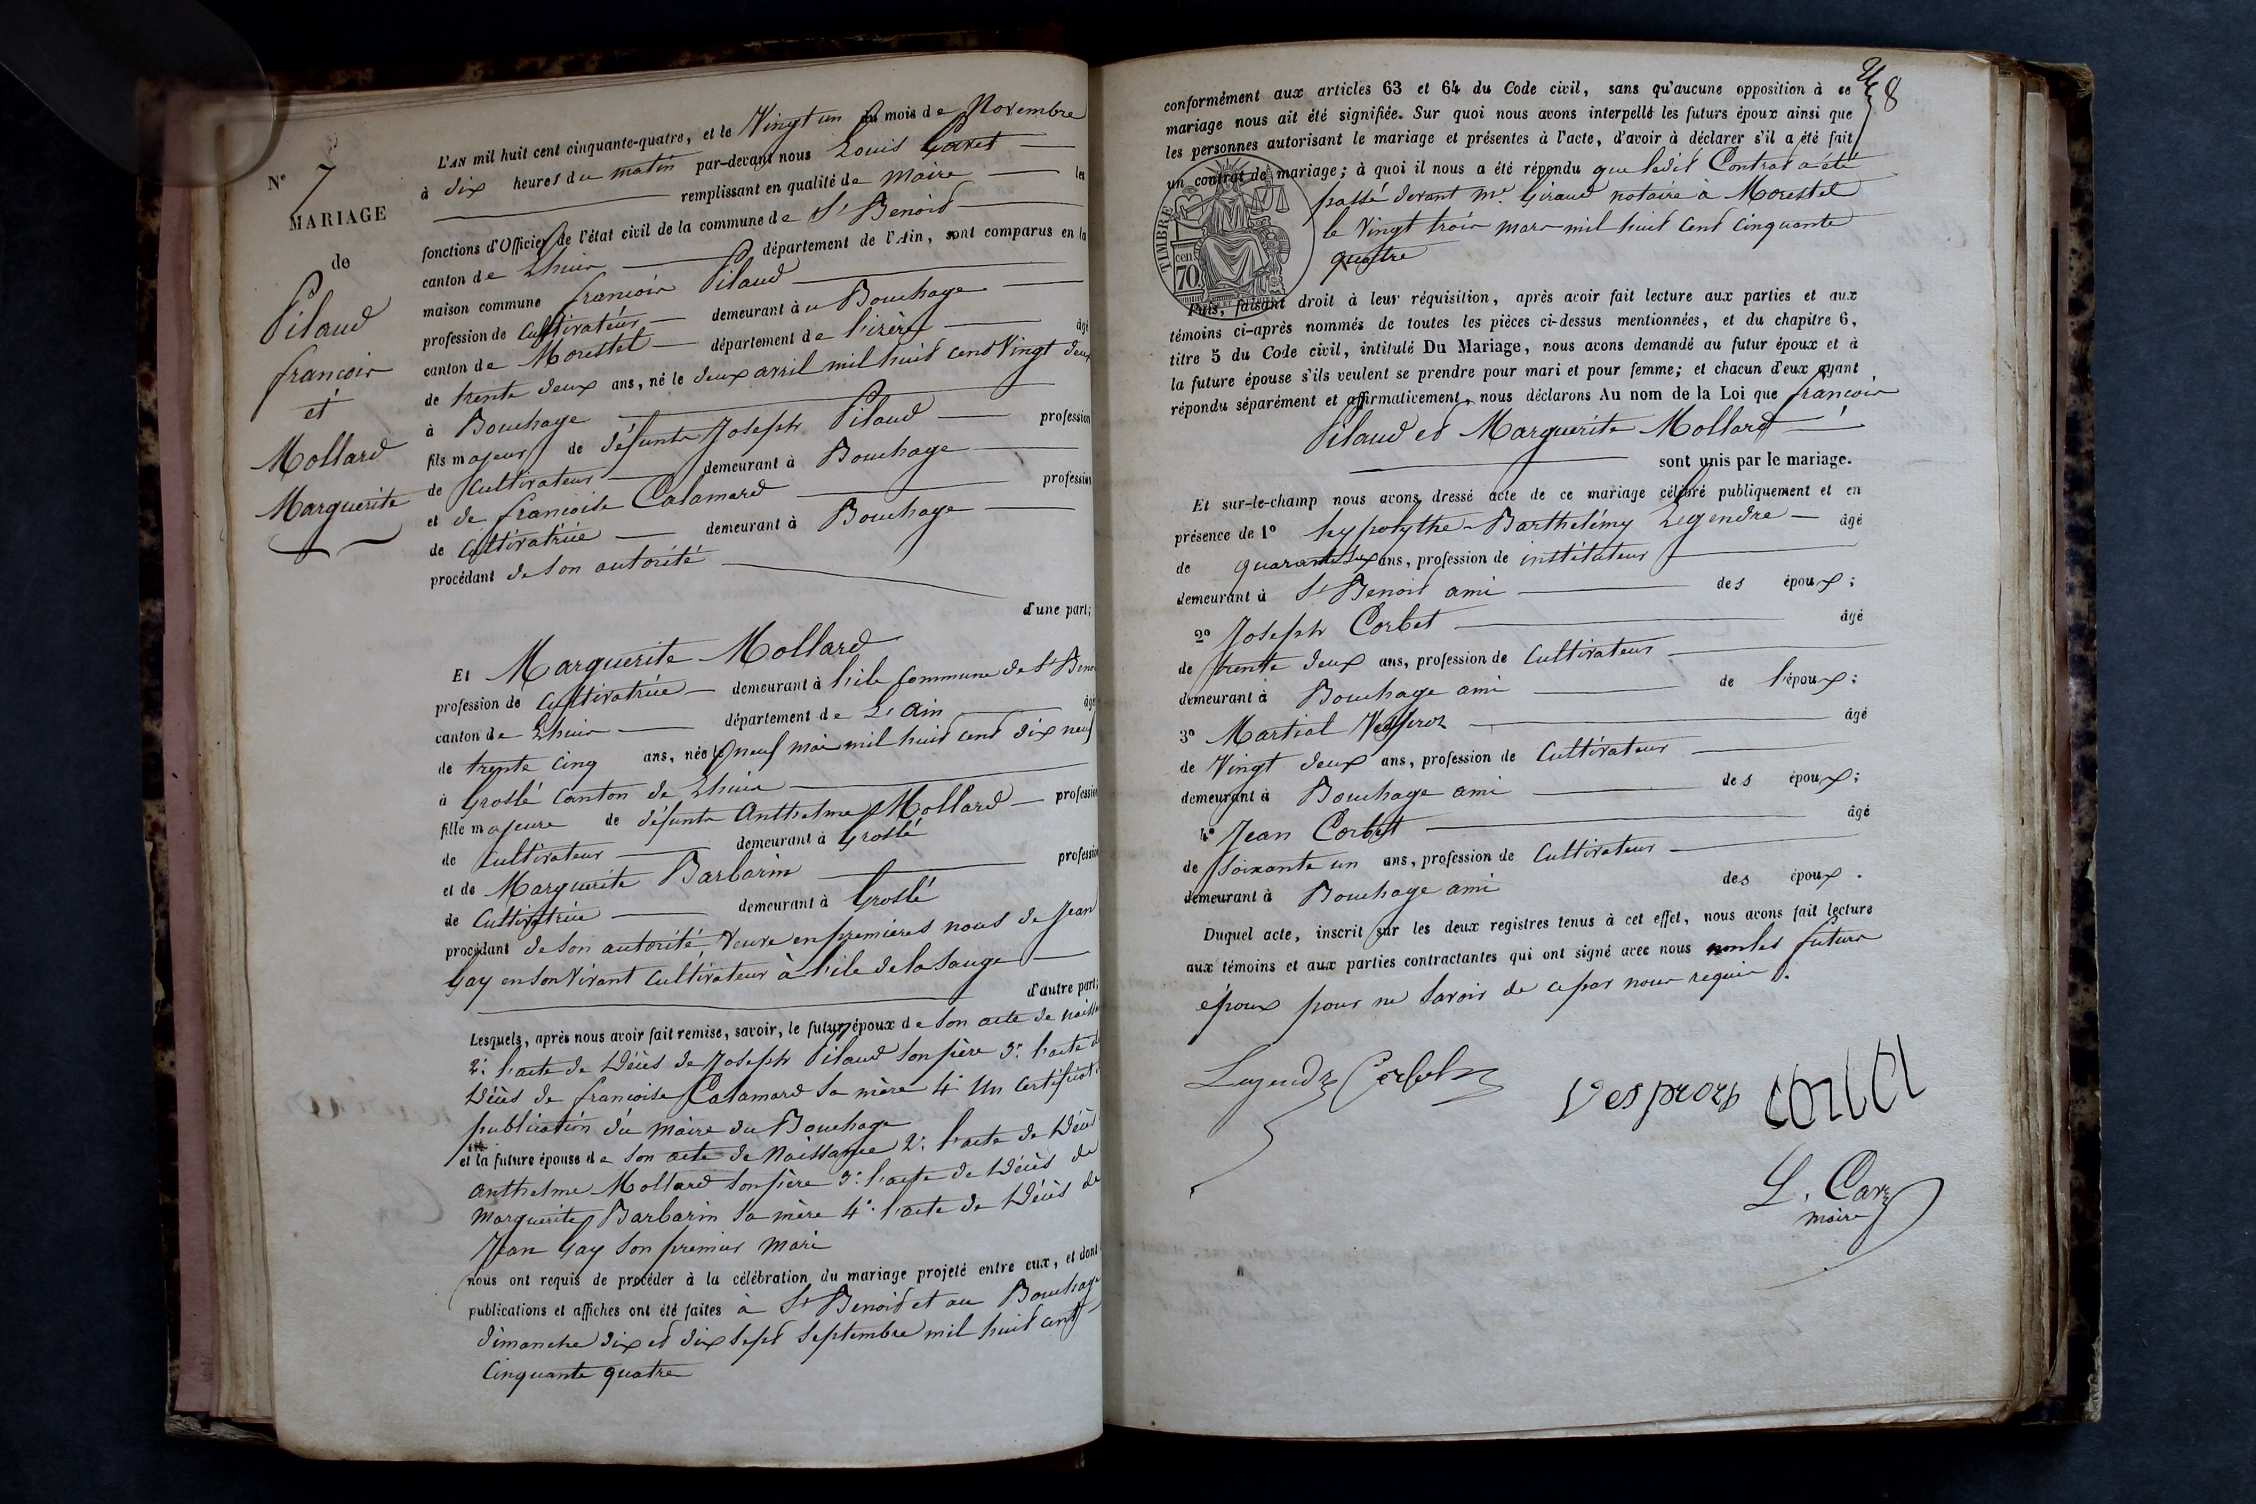 Nº 7
MARIAGE
de
Pilaud
francois
et
Mollard
Marguerite
L'AN mil huit cent cinquante-quatre, et le Vingt un du mois de Novembre
à dix heures du matin par-devant nous Louis
remplissant en qualité de maire les
fonctions d'Officier de l'état civil de la commune de St Benoit
canton de Lhuis département de l'Ain, sont comparus en la
maison commune francois Pilaud
profession de Cultivateur demeurant à u Bouchage
canton de Morestel département de l'isère âgé
de trente deux ans, né le deux avril mil huit cent Vingt deux
à Bouchage
fils majeur de défunts Joseph Pilaud profession
de Cultivateur demeurant à Bouchage
et de francoise Calamard profession
de Cultivatrice demeurant à Bouchage
procédant de son autorité
d'une part;
Et Marguerite Mollard
profession de Cultivatrice demeurant à l'ile Commune de St Beno
canton de Lhuis département de L'Ain âgé
de trente cinq ans, née le neuf mai mil huit cent dix neuf
à Groslé Canton de Lhuis
fille majeure de défunts Anthelme Mollard profession
de Cultivateur demeurant à Groslé
et de Marguerite Barbarin profession
de Cultivatrice demeurant à Groslé
procédant de son autorité Veuve en premières nous de Jean
Gay en son Vivant Cultivateur à l'ile de la Sauge
d'autre part;
Lesquels, après nous avoir fait remise, savoir, le futur époux de son acte de naiss
2º l'acte de Décès de Joseph Pilaud son père 3º l'acte d
Décès de francoise Calamard sa mère 4º Un Certificat
publication du maire du Bouchage
et la future épouse de son acte de Naissance 2º l'acte de Décès
anthelme Mollard son père 3º l'acte de Décès de
Marguerite Barbarin sa mère 4º l'acte de Décès de
Jean Gay son premier Mari
nous ont requis de procéder à la célébration du mariage projeté entre eux, et dont
publications et affiches ont été faites à St Benoit et au Bouchage
dimanche dix et dix sept septembre mil huit cent
Cinquante quatre
8
conformément aux articles 63 et 64 du Code civil, sans qu'aucune opposition à ce
mariage nous ait été signifiée. Sur quoi nous avons interpellé les futurs époux ainsi que
les personnes autorisant le mariage et présentes à l'acte, d'avoir à déclarer s'il a été fait
un contrat de mariage; à quoi il nous a été répondu que ledit Contrat a été
passé devant me. Giraud notaire à Morestel
le Vingt trois mars mil huit cent cinquante
quatre
TIMBRE
cen
70
Puis, faisant droit à leur réquisition, après avoir fait lecture aux parties et aux
témoins ci-après nommés de toutes les pièces ci-dessus mentionnées, et du chapitre 6,
titre 5 du Code civil, intitulé Du Mariage, nous avons demandé au futur époux et à
la future épouse s'ils veulent se prendre pour mari et pour femme; et chacun d'eux ayant
répondu séparément et affirmativement, nous déclarons Au nom de la Loi que francois
Pilaud et Marguerite Mollard
sont unis par le mariage.
Et sur-le-champ nous avons dressé acte de ce mariage célébré publiquement et en
présence de 1º hypolythe-Barthelémy Legendre âgé
de ans, profession de instituteur
demeurant à St Benoit ami des époux;
2º Joseph Corbet âgé
de trente deux ans, profession de Cultivateur
demeurant à Bouchage ami de l'époux;
3º Martial âgé
de Vingt deux ans, profession de Cultivateur
demeurant à Bouchage ami des époux;
4º Jean Corbet âgé
de soixante un ans, profession de Cultivateur
demeurant à Bouchage ami des époux.
Duquel acte, inscrit sur les deux registres tenus à cet effet, nous avons fait lecture
aux témoins et aux parties contractantes qui ont signé avec nous non les futurs
époux pour ne savoir de ce par nous requis.
Legendre Corbet
Vesproz
L. Carr
maire